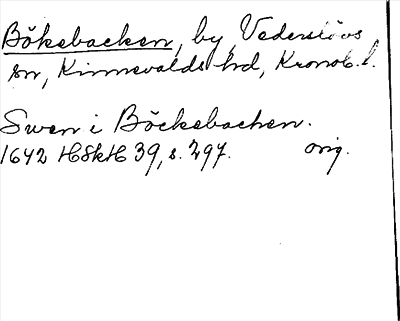 Bökebacken, by, Vederslövs
sn, Kinnevalds hd, Kronob. l.
Swen i Böckebacken.
1642 HSkH 39, s. 297. orig.